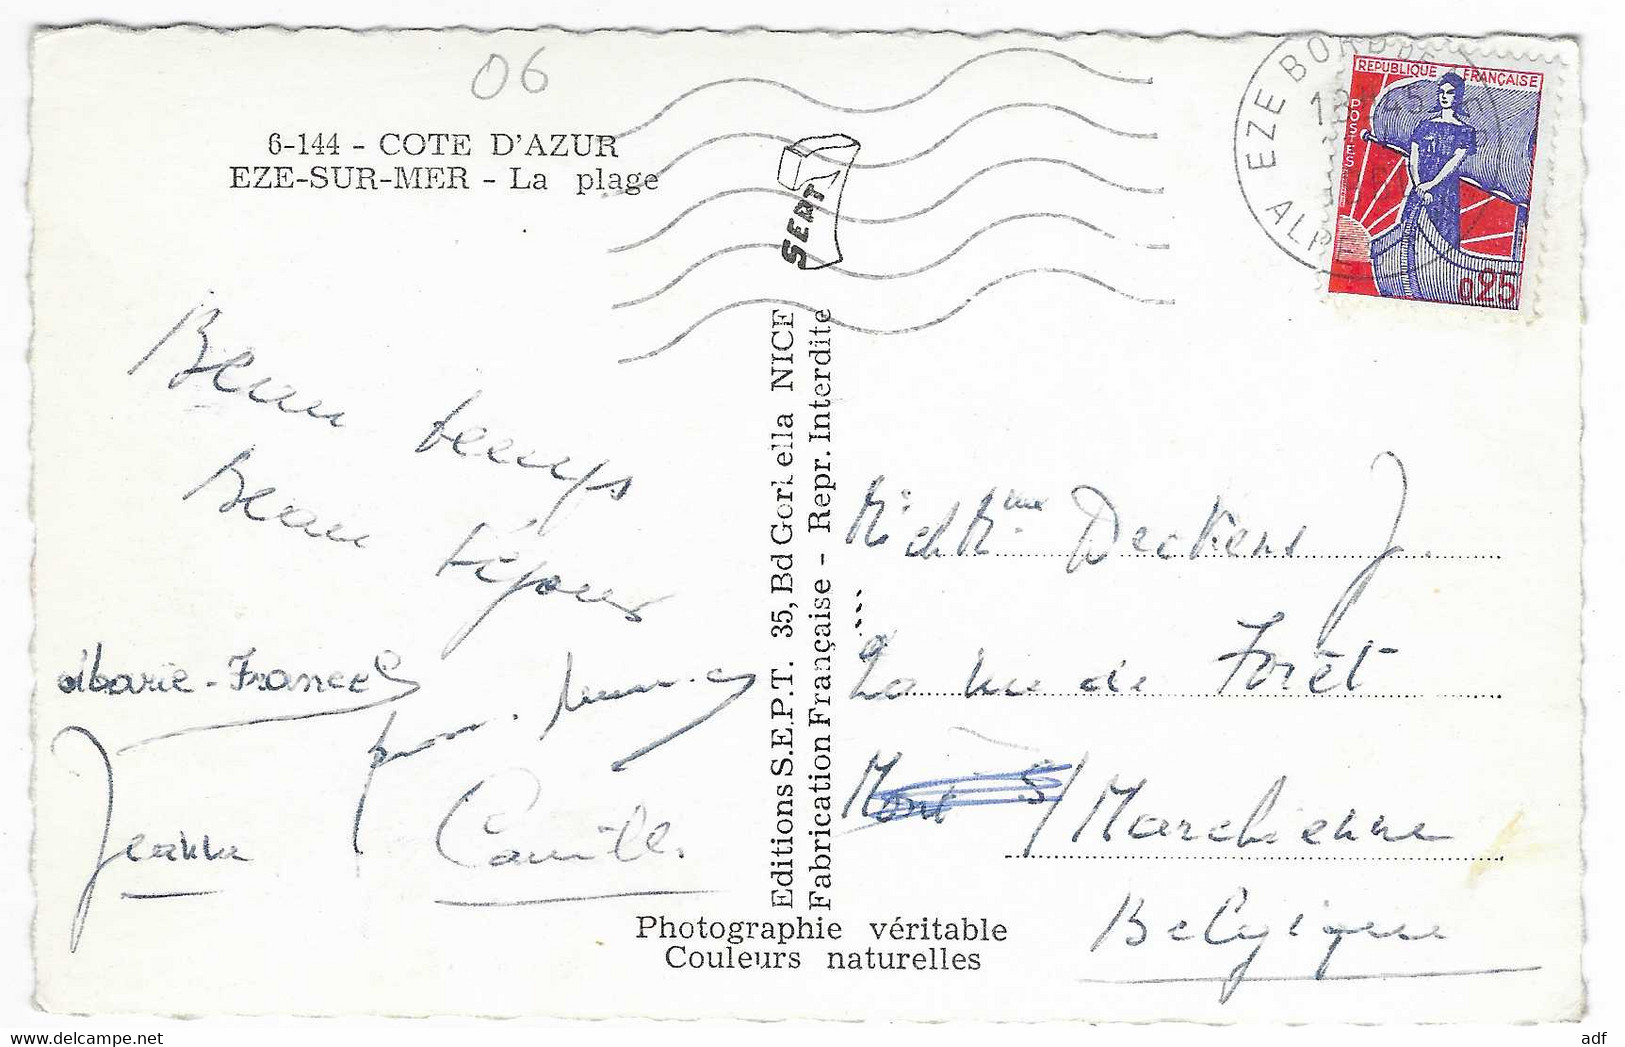 06
6-144 - COTE D'AZUR
EZE-SUR-MER - La plage
SEPT
EZE BORD
ALP
REPUBLIQUE FRANÇAISE
POSTES
0,25
Beau temps
Beau séjour
Marie-France
Jeanne
Camille
Editions S.E.P.T. 35, Bd Gorbella NICE
Fabrication Française - Repr. Interdite
Photographie véritable
Couleurs naturelles
Mr et Mme Deckens J.
Rue de Forêt
Mont s/ Marchienne
Belgique
adf